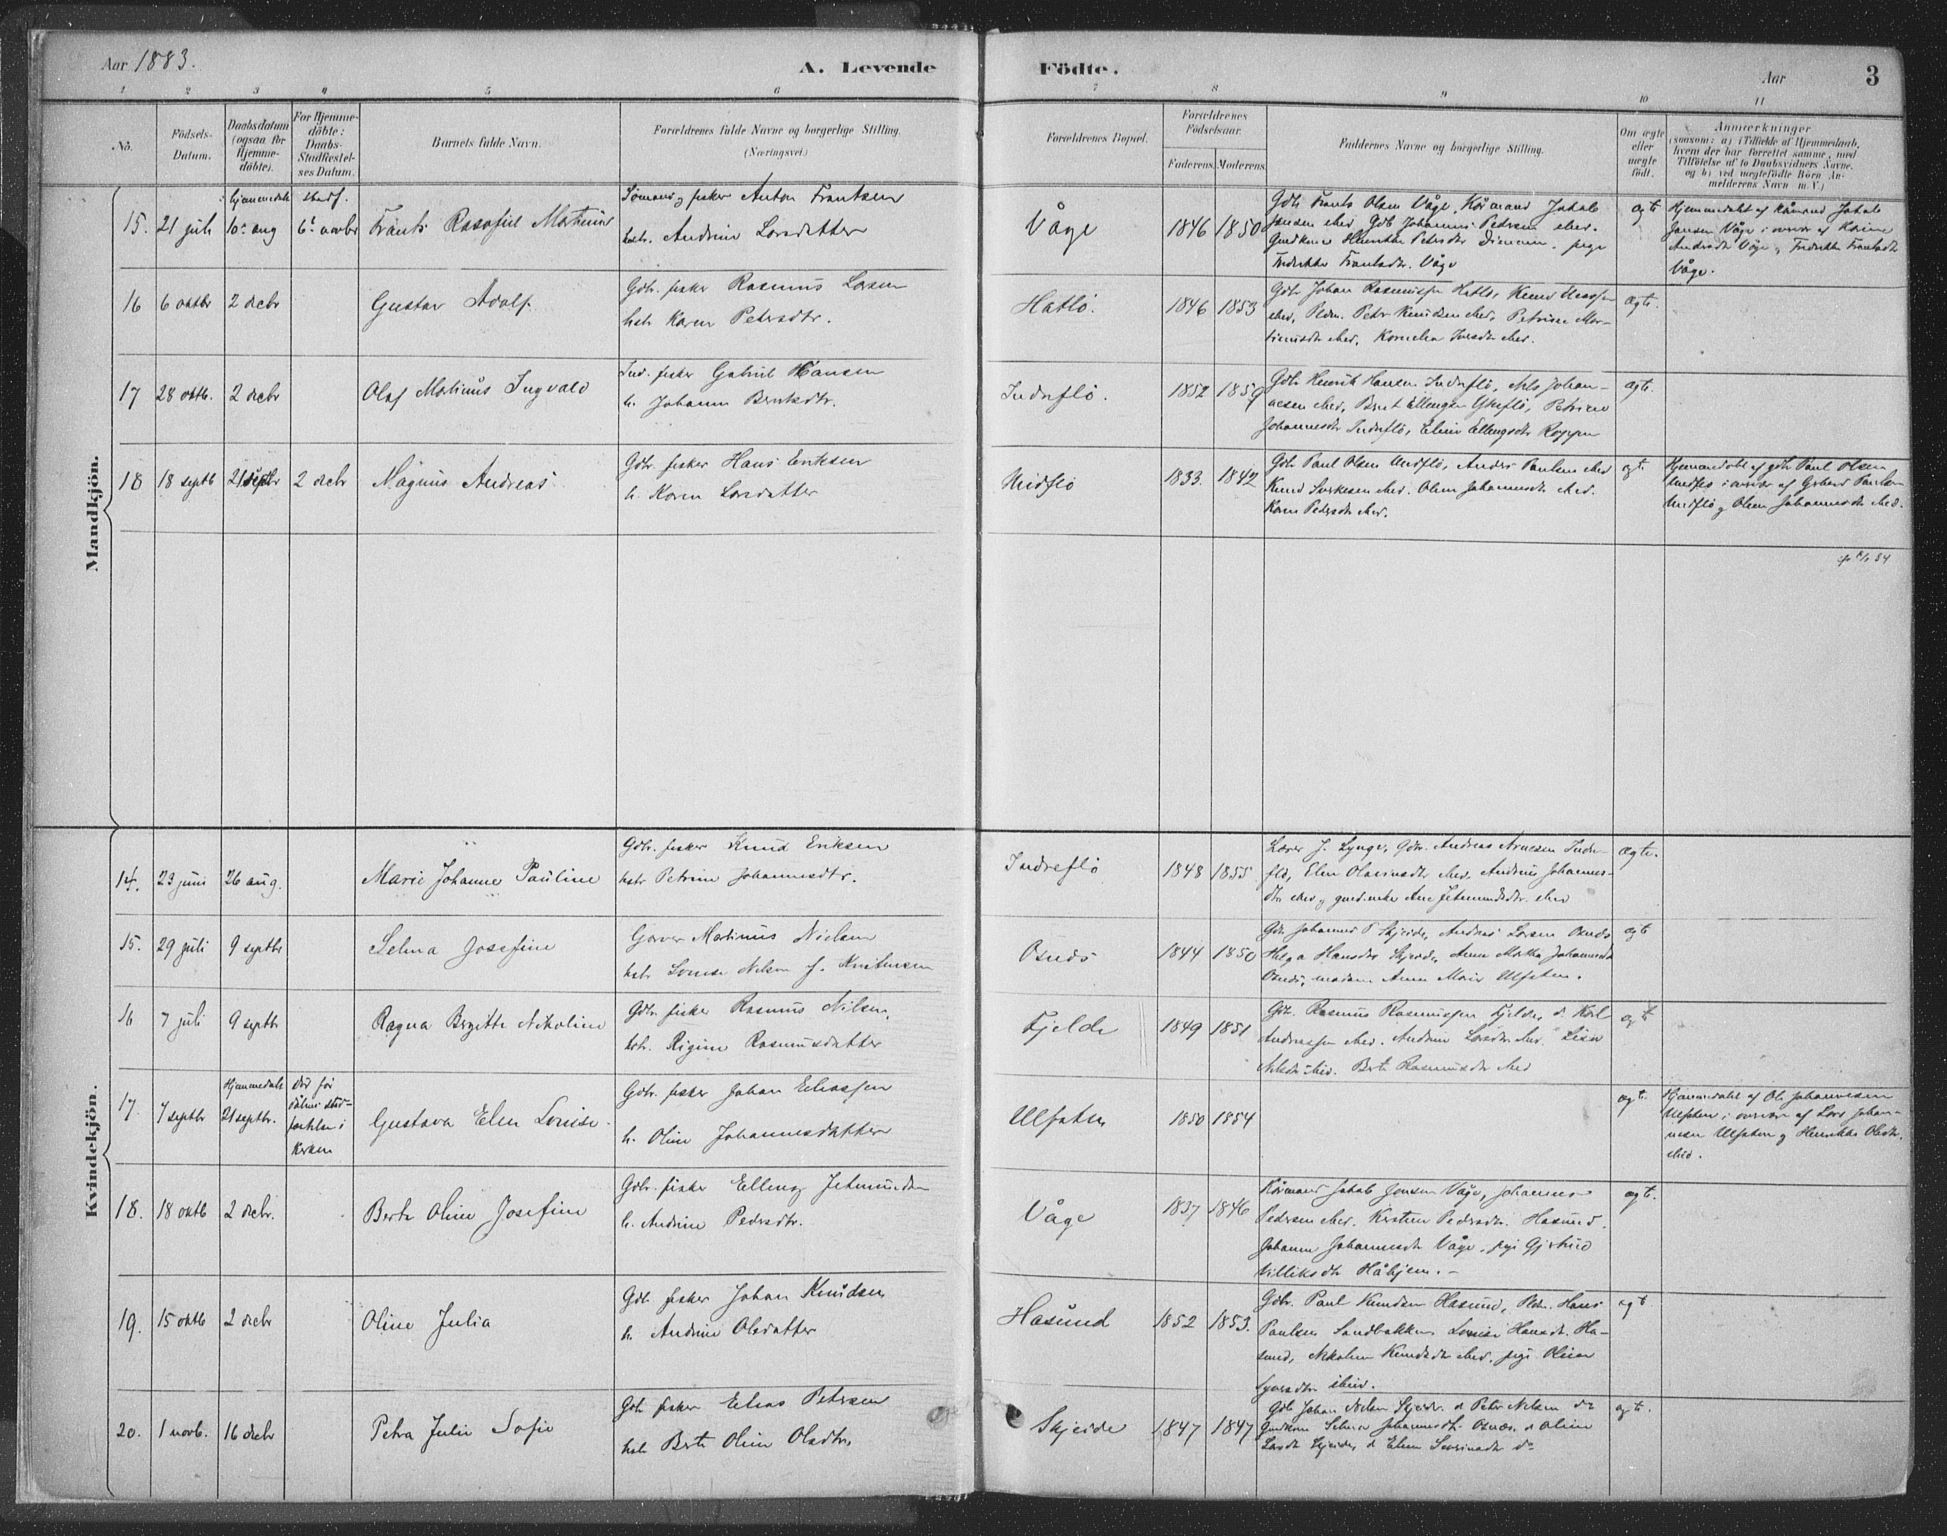 Aar 1883.
A. Levende Födte.
Aar
3
1 2 3 4 5 6 7 8 9 10 11
No.
Födsels-
Datum.
Daabsdatum
(ogsaa for
Hjemme-
döbte).
For Hjemme-
döbte:
Daabs-
Stadfæstel-
ses Datum.
Barnets fulde Navn.
Forældrenes fulde Navne og borgerlige Stilling.
(Næringsvei.)
Forældrenes Bopæl.
Forældrenes
Födselsaar.
Faderens. Moderens.
Faddernes Navne og borgerlige Stilling.
Om ægte
eller
uægte
födt.
Anmærkninger
(saasom: a) i Tilfælde af Hjemmedaab,
hvem der har forrettet samme, med
Tilföielse af to Daabsvidners Navne,
og b) ved uægtefödte Börn An-
melderens Navn m. V.)
Mandkjön.
15. 21 juli
hjemmedøbt
10. aug
stadf.
6. novbr
Frants Rasofiel Mathias
Sømand og fisker Anton Frantsen
hstr. Andrine Larsdatter
Våge
1846 1850
Gdb. Frants Olsen Våge, Kårmand Jakob
Jansen ibid. Gdb Johannes Petersen ibid.
pige
Fredrikke Frantsdtr. Våge
ægt.
Hjemmedøbt af Kårmand Jakob
Jansen Våge i overvær af Karine
Andrsdtr Våge og Fredrikke Frantsdtr
Våge.
16 6 oktbr 2 decbr
Gustav Adolf
Gdbr. fisker Rasmus Larsen
hstr. Karen Petersdtr.
Hatlø.
1846 1853
Gdb. Johan Rasmussen Hatlø, Knud
ibid, Peder Knudsen ibid, Petrine Mar-
tinusdtr ibid, Kornelia Iversdtr ibid.
ægte.
17 28 oktb. 2 decbr
Olaf Matinus Ingvald
Ind. fisker Gabriel Hansen
h. Johanne Berntsdtr.
Indreflø.
1852 1859
Gdb. Henrik Hansen Indreflø, Nils Johan-
nesen ibid, Bernt Ellengsen Ytreflø, Petrine
Johannesdtr Indreflø, Eline Ellengsdtr Roppen
ægte.
18 18 septb 21 septbr 2 decbr
Magnus Andreas
Gdbr. fisker Hans Eriksen
h. Karen Larsdatter
Midflø
1833. 1842
Gdb. Paul Olsen Midflø, Anders Paulsen ibid
Knud Sivertsen ibid. Oline Johannesdtr ibid.
Karen Pedersdtr ibid.
ægt.
Hjemmedøbt af gdb Paul Olsen
Midflø i overvær af Paulsen
Midflø og Oline Johannesdtr ibid.
84
Kvindekjön.
14. 23 juni 26 aug.
Marie Johanne Pauline
Gdbr. fisker Knud Eriksen
hstr Petrine Johannesdtr.
Indreflø
1848 1855
Lærer J. Lynge, Gdbr. Andreas Arnesen Indre-
flø, Elen Olavusdtr ibid, Andrine Johannes-
dtr ibid og gaardenke Ane Jetmundsdtr. ibid
ægte.
15. 29 juli 9 septbr
Selma Josefine
Garver Matinus Nielsen
hstr Lovise Nilsen f. Kristensen
Osnæs
1844 1850
Gdb Johannes P Skjeide, Andreas Larsen Osnæs
Helga Hansdtr Skjeide, Anne Marta Johannesdtr
Osnæs, madam Anne Marie Ulfsten.
ægt
16 7 juli 9 septbr
Ragna Birgitte Nikoline
Gdbr. fisker Rasmus Nilsen,
hstr. Rigine Rasmusdatter
Fjelde
1849 1851
Gdb. Rasmus Rasmussen Fjelde, d. Karl
Andreassen ibid. Andrine Larsdtr ibid. Lisa
Nilsdtr ibid. Berte Rasmusdtr ibid
ægt
17. 7 septbr
Hjemmedøbt
21 septbr.
Død før
i
kirken
Gustava Elen Lovise.
Gdbr. fisker Johan Eliassen
h. Oline Johannesdatter
Ulfsten
1850 1854
ægt.
Hjemmedøbt af Ole Johannesen
Ulfsten i overvær af Lars Johan-
nesen Ulfsten og Henrikke Olsdtr.
ibid.
18. 18 oktb 2 decbr.
Berte Oline Josefine
Gdbr. fisker Elleng Jetmundsen
h. Andrine Pedersdtr.
Våge
1837 1846
Kårmand Jakob Jonsen Våge, Johannes
Pedersen ibid. Kirstine Pedersdtr. Hasund.
Johanne Johannesdtr Våge, pige Gjertrud
Villiksdtr Håhjem.
ægt.
19. 15 oktb 2 decbr
Oline Julia
Gdb. fisker Johan Knudsen
h. Andrine Olsdatter
Hasund
1852 1853.
Gdbr. Paul Knudsen Hasund, Hans
Paulsen Sandbakken Lovise Hansdtr. Ha-
sund, Nikoline Knudsdtr ibid, pige Oline
Syversdtr ibid.
ægt.
20. 1 novb. 16 decbr
Petra Julie Sofie
Gdb fisker Elias Petersen
hstr Berte Oline Olsdtr.
Skjeide
1847 1847
Gdb Johan Nielsen Skjeide. d Peter Nilsen do
Gaardkone Selma Johannesdtr. Osnæs. d Oline
Larsdtr Skjeide, d Elen Severinsdtr do
ægt.